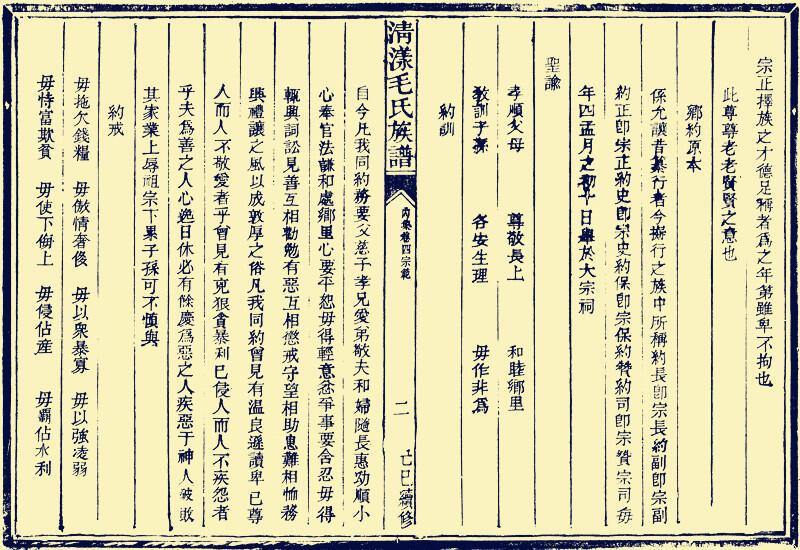 宗正擇族之才德足稱者爲之年第雖卑不拘也
此尊尊老老賢賢之意也
鄉約原本
係允讓昔纂行者今擬行之族中所稱約長即宗長約副即宗副
約正即宗正約史即宗史約保即宗保約贊約司即宗贊宗司每
年四孟月之初十日舉於大宗祠
聖諭
孝順父母 尊敬長上 和睦鄉里
教訓子孫 各安生理 毋作非爲
約訓
清漾毛氏族譜 內集卷四宗範 二 己巳續修
自今凡我同約務要父慈子孝兄愛弟敬夫和婦隨長惠幼順小
心奉官法謙和處鄉里心要平恕毋得輕意忿爭事要含忍毋得
輒興詞訟見善互相勸勉有惡互相懲戒守望相助患難相恤務
興禮讓之風以成敦厚之俗凡我同約曾見有溫良遜讓卑己尊
人而人不敬愛者乎曾見有兇狠貪暴利己侵人而人不疾怨者
乎夫爲善之人心逸日休必有餘慶爲惡之人疾惡于神人被敗
其家業上辱祖宗下累子孫可不慎與
約戒
毋拖欠錢糧 毋傲惰奢侈 毋以衆暴寡 毋以強凌弱
毋恃富欺貧 毋使下侮上 毋侵佔產 毋霸佔水利